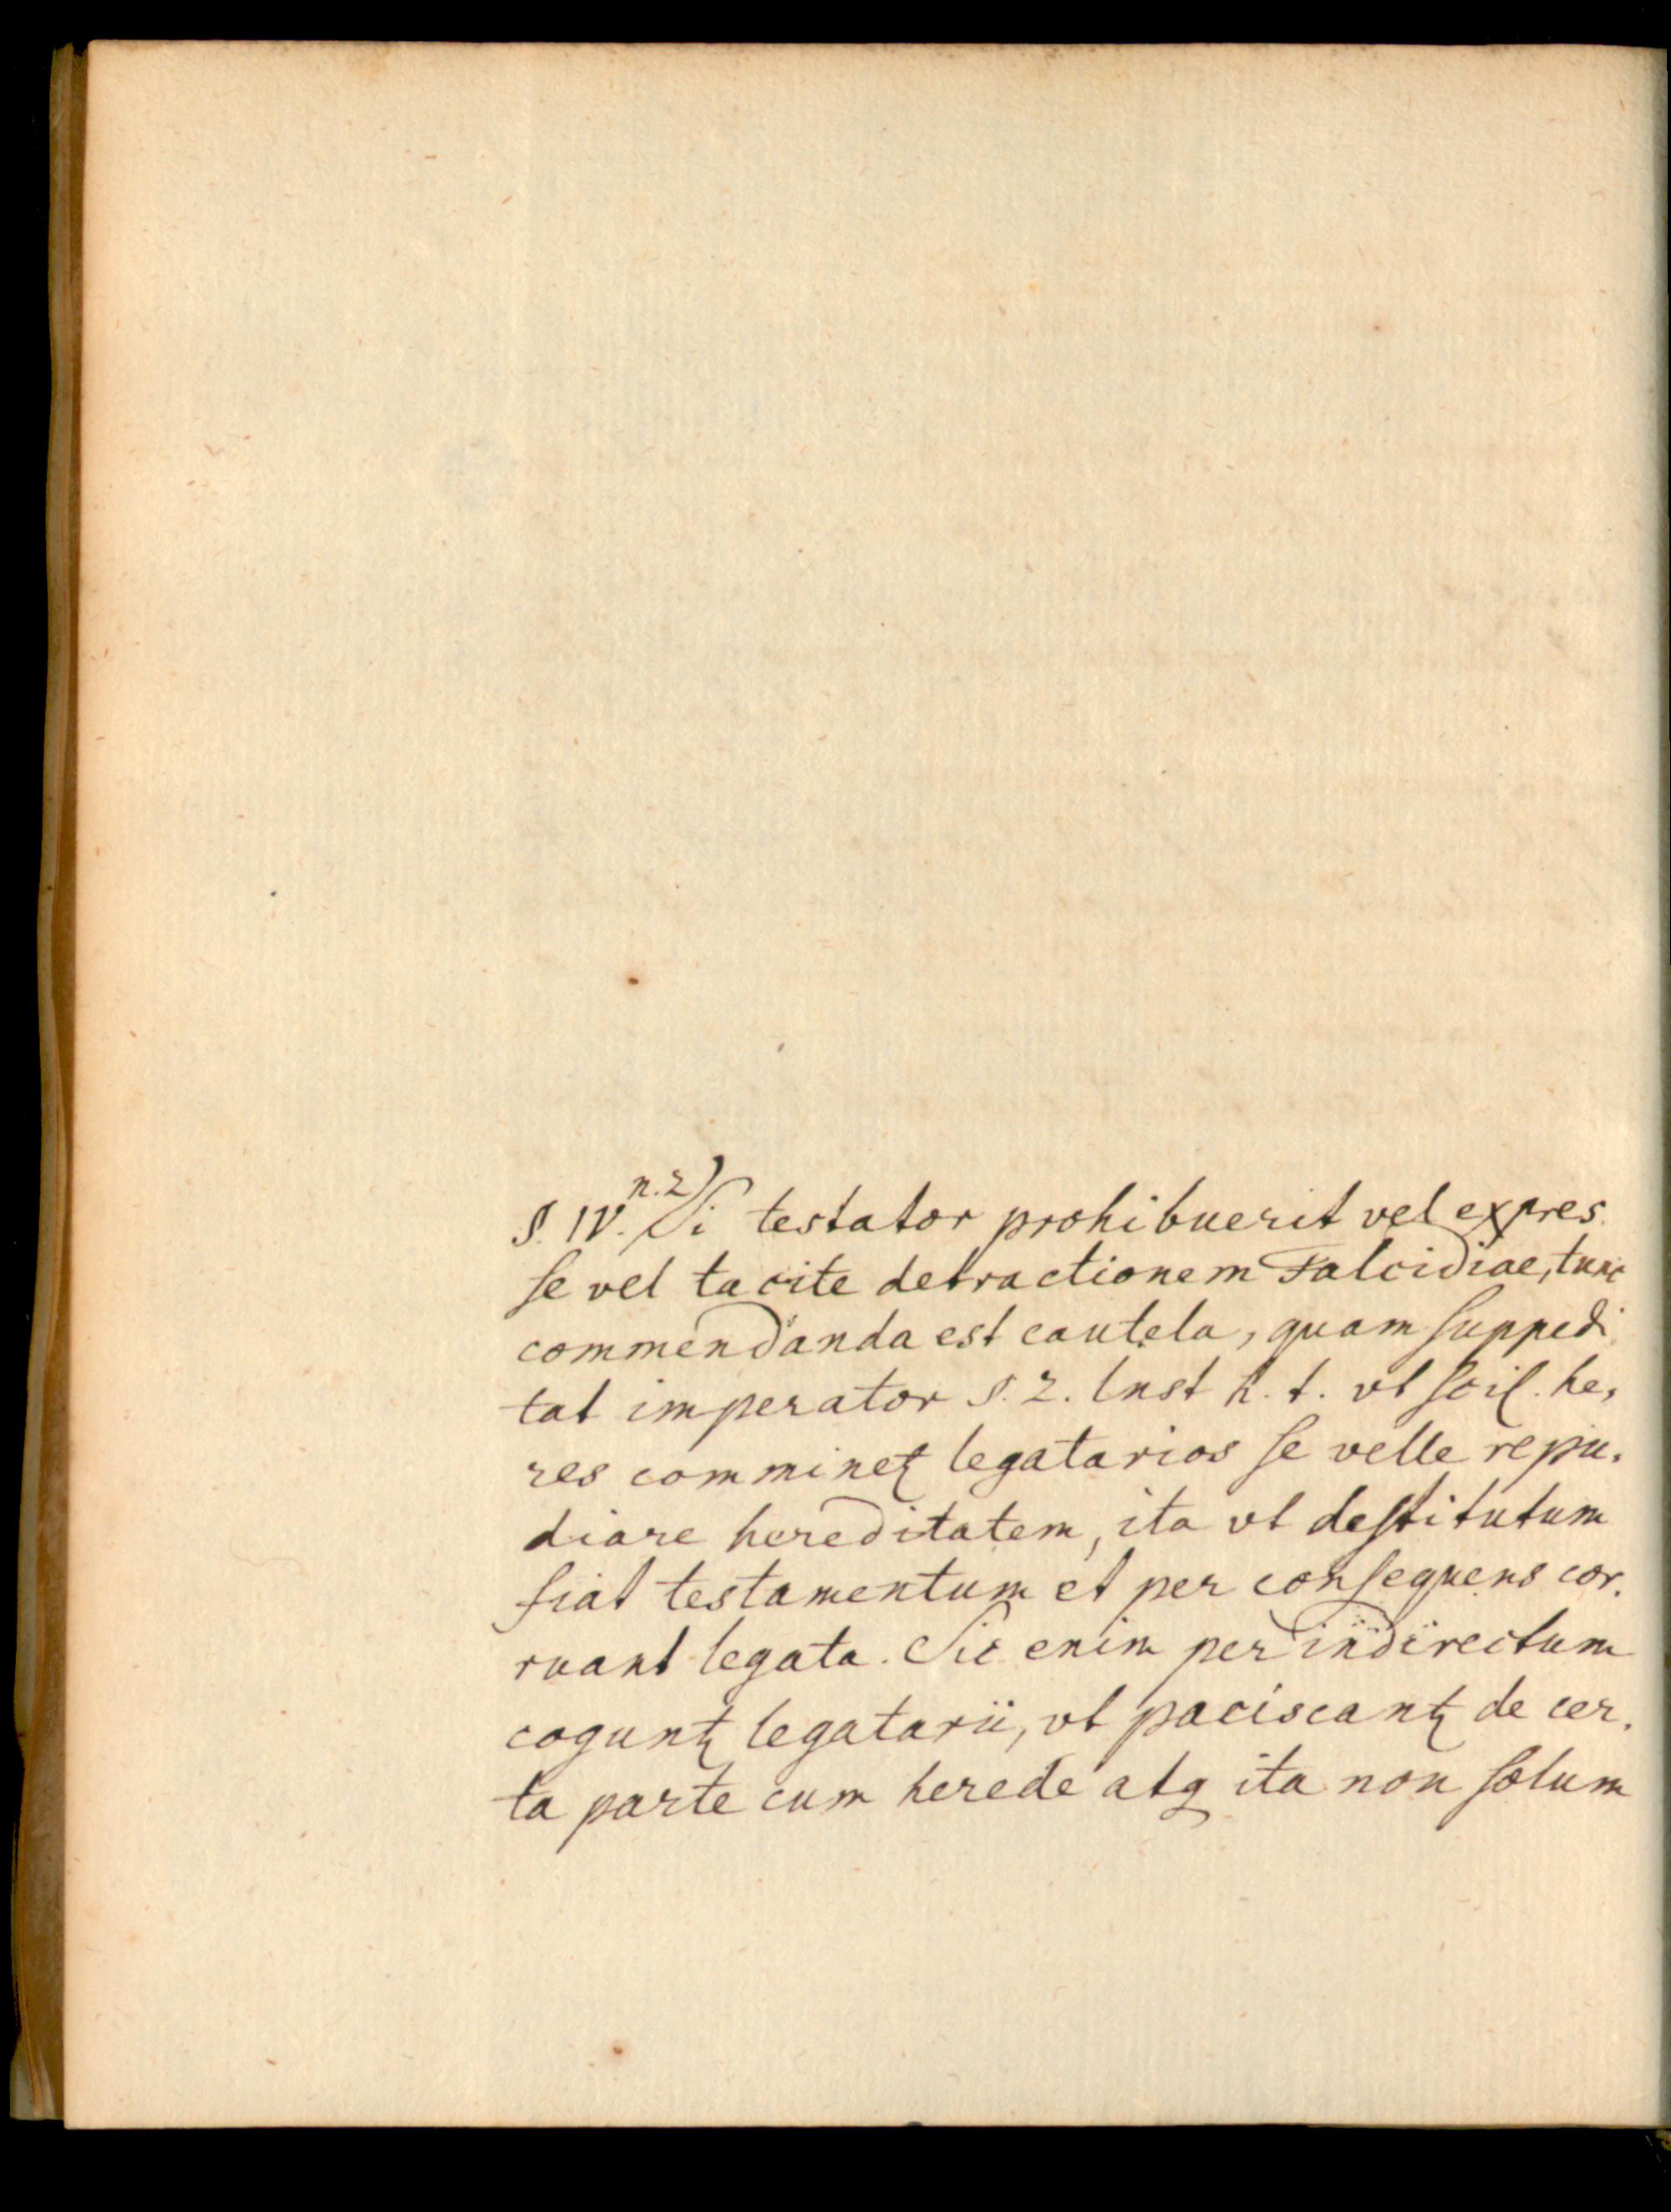 §. IV. n. 2) Si testator prohibuerit vel expres.
se vel tacite detractionem Falcidiae, tunc
commendanda est cautela, quam suppedi
tat imperator §. 2. Inst h. t. vt scil. he,
res comminetꝛ legatarios se velle repu,
diare hereditatem, ita vt destitutum
fiat testamentum et per consequens cor.
ruant legata. Sic enim per indirectum
coguntꝛ legatarii, vt paciscantꝛ de cer,
ta parte cum herede atq ita non solum